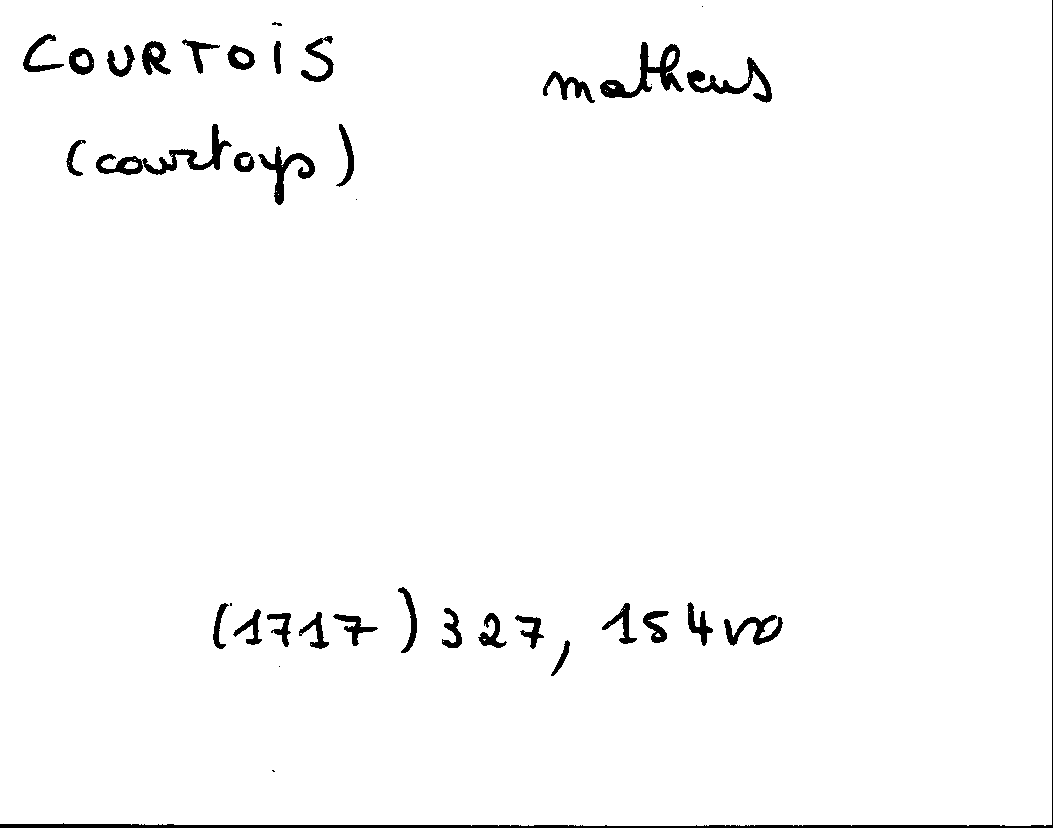 COURTOIS matheus
(courtoys)
(1717) 327, 154vo